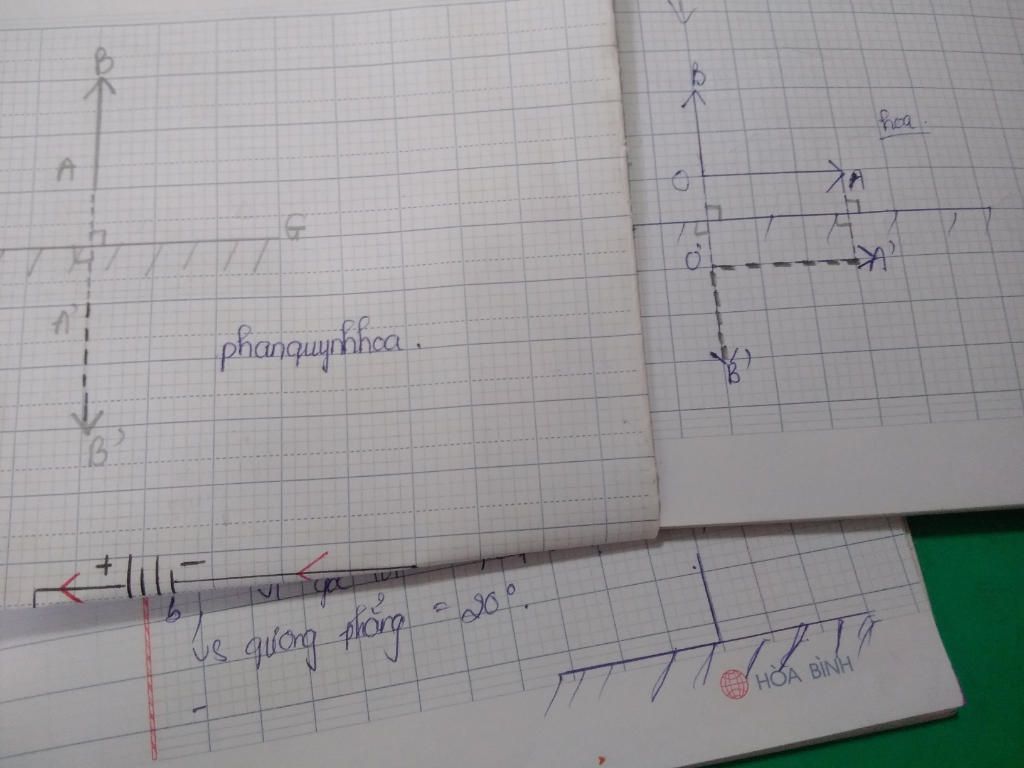 B
A
G
A'
B'
phanquynhhoa.
B
hoa.
O
A
O'
A'
B'
+ −
b
gương phẳng = 20°.
HÒA BÌNH